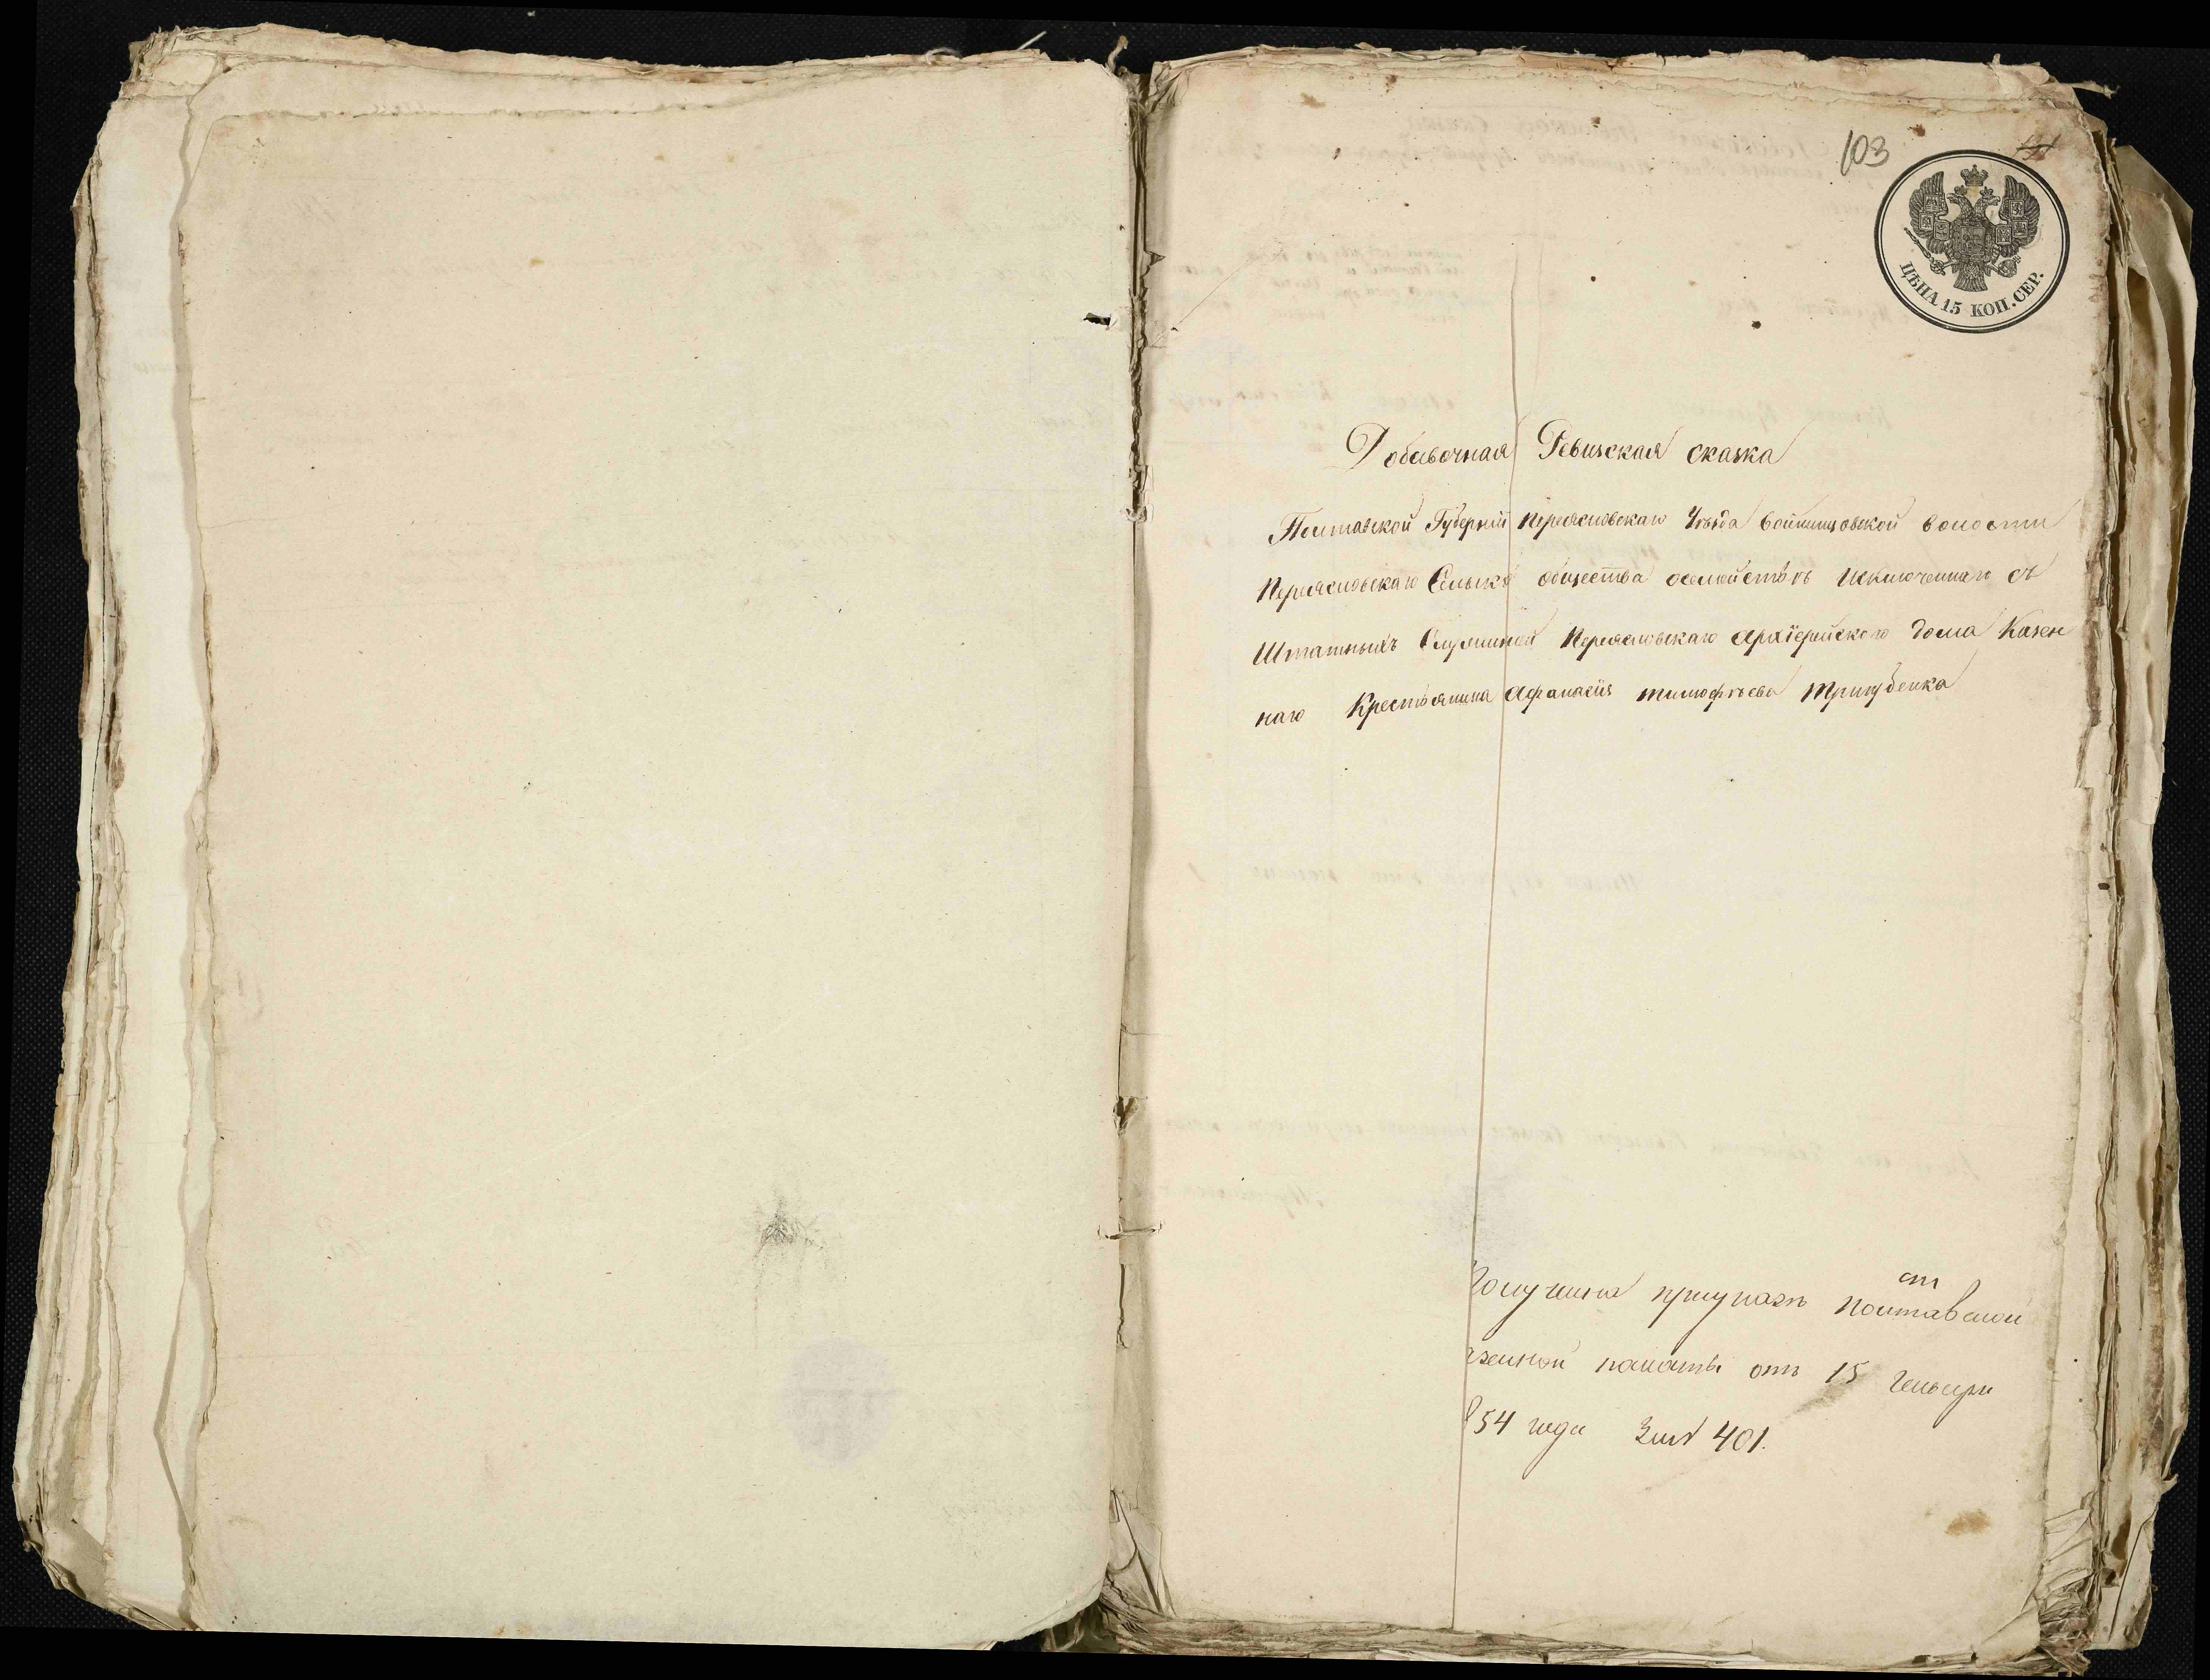 103
ЦѢНА 15 КОП. СЕР.
Добавочная Ревизская сказка
Полтавской Губерніи Переясловскаго Уѣзда Войтовской волости
Переясловскаго Сельскаго общества осемействѣ исключеннаго съ
Штатныхъ Служителей Переясловскаго Архіерейскаго дома Казен
наго Крестьянина Афанасія тимофѣева тригубенка
Получена приуказѣ Полтавской
казенной палаты отъ 15 Генваря
854 года За № 401.